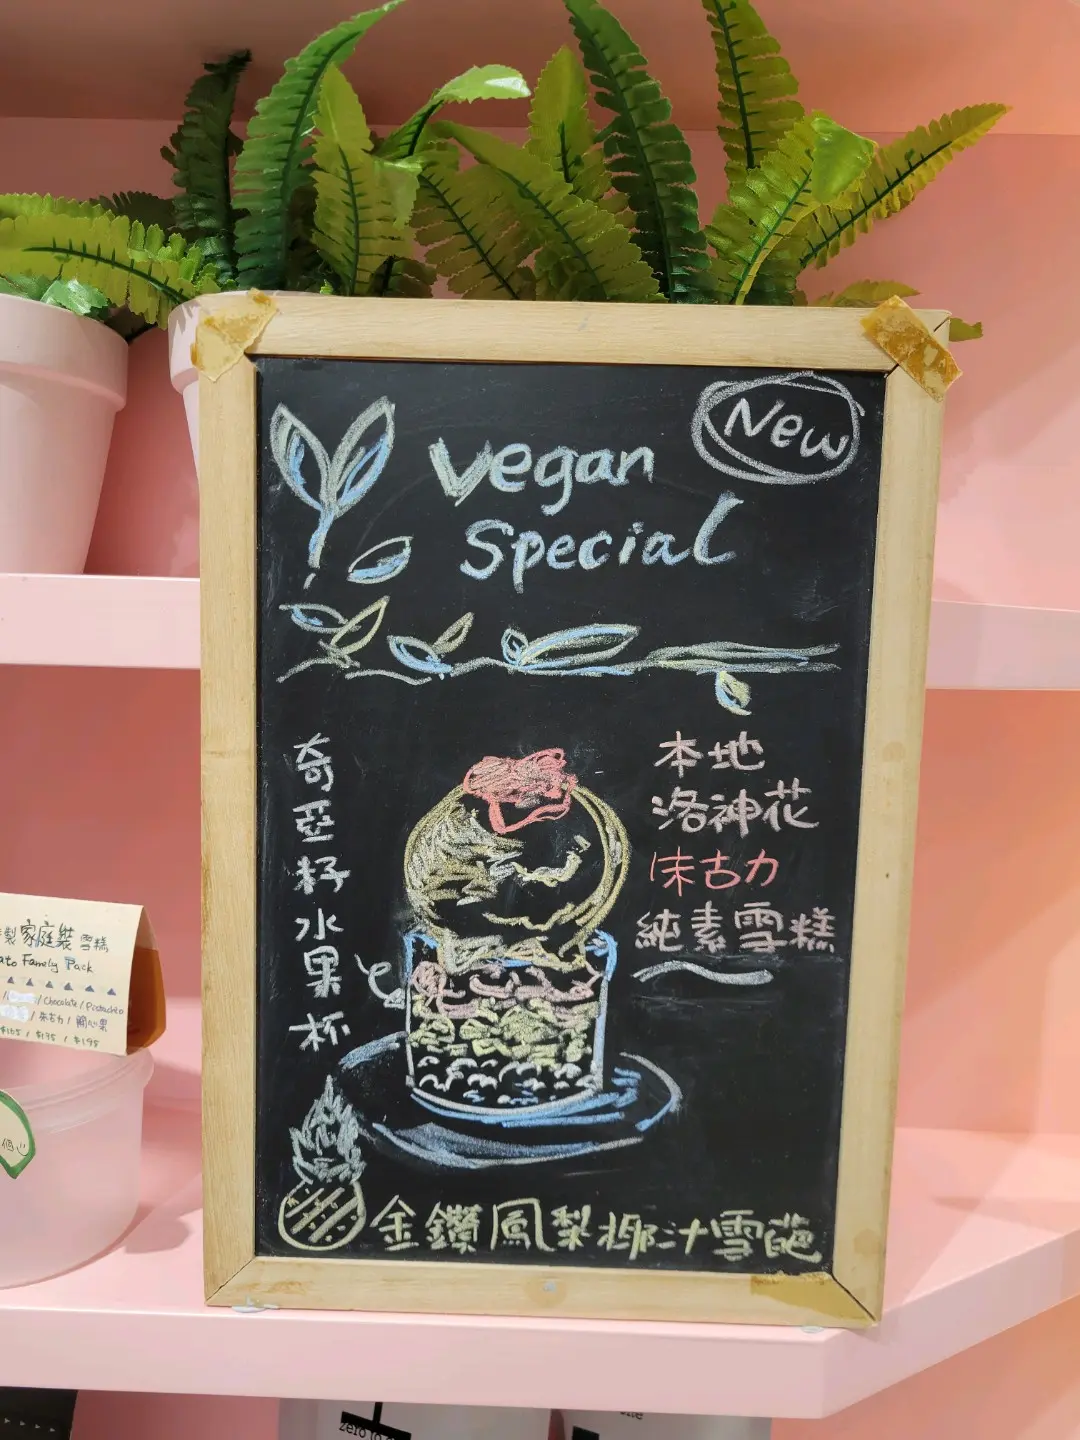 New
Vegan
Special
奇亞籽水果杯
本地
洛神花
朱古力
純素雪糕
金鑽鳳梨椰汁雪葩
製家庭裝雪糕
ato Family Pack
/ Chocolate / Pistachio
/ 朱古力 / 開心果
$165 / $175 / $195
個
zero to
one